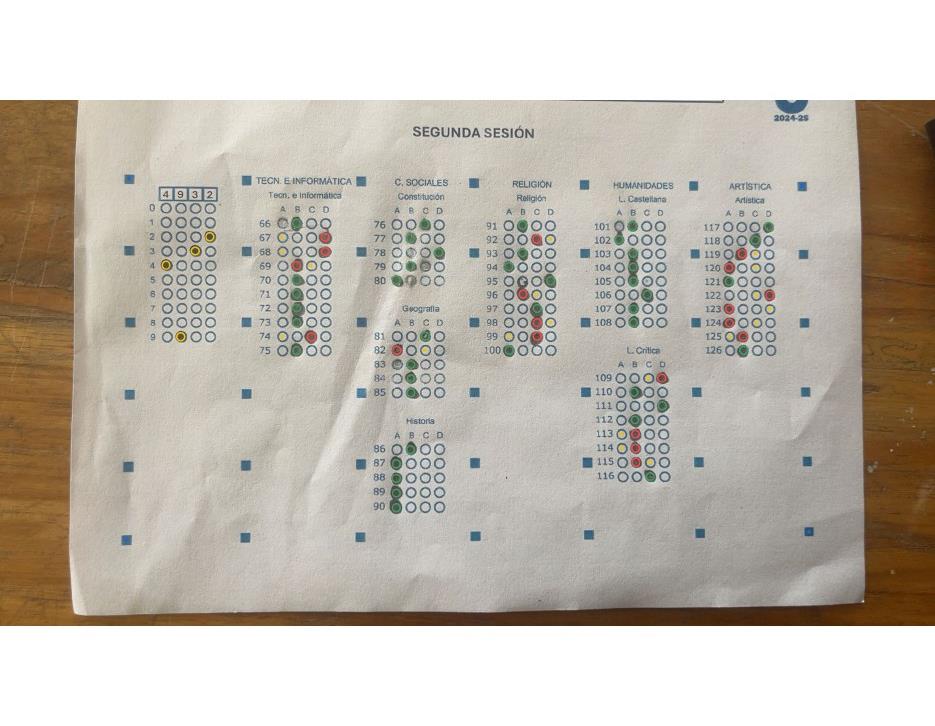 2024-25
SEGUNDA SESIÓN
4 9 3 2
0
1
2
3
4
5
6
7
8
9
TECN. E INFORMÁTICA
Tecn. e Informática
A B C D
66
67
68
69
70
71
72
73
74
75
C. SOCIALES
Constitución
A B C D
76
77
78
79
80
Geografía
A B C D
81
82
83
84
85
Historia
A B C D
86
87
88
89
90
RELIGIÓN
Religión
A B C D
91
92
93
94
95
96
97
98
99
100
HUMANIDADES
L. Castellana
A B C D
101
102
103
104
105
106
107
108
L. Crítica
A B C D
109
110
111
112
113
114
115
116
ARTÍSTICA
Artística
A B C D
117
118
119
120
121
122
123
124
125
126